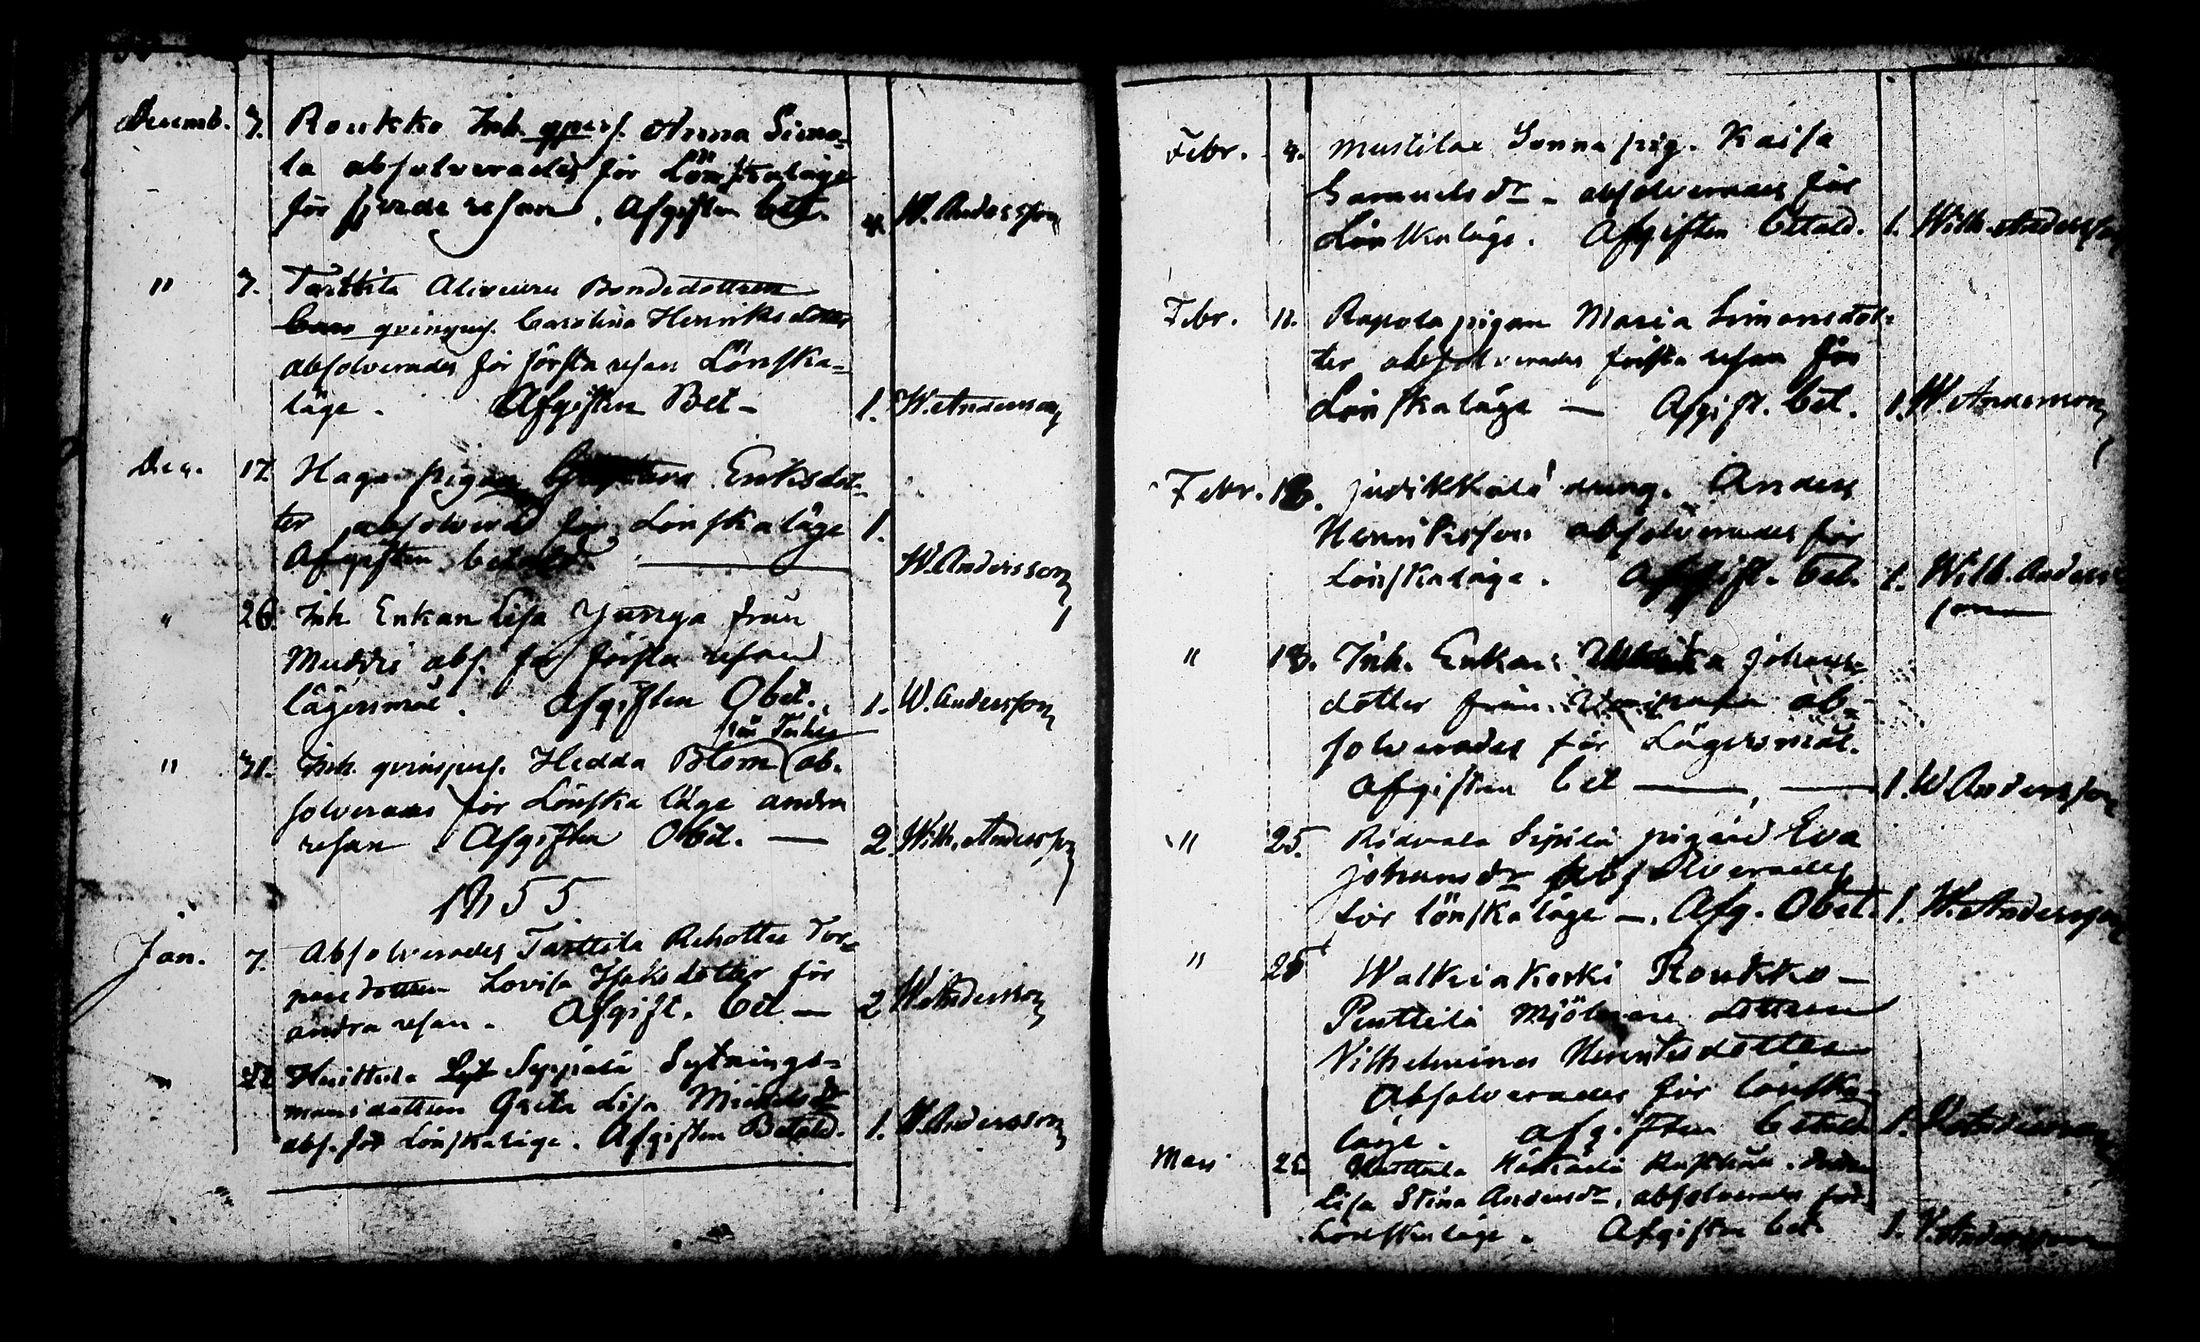 Decemb. 7. Roukko Inh. qpers. Anna Sima-
la absolverades för Lönskaläge
för fjerde resan. Afgiften bet. 4 W. Andersson
" 7. Tarttila Alivuuru Bondedottren
qvinspers. Carolina Henriksdotter
absolverades för första resan Lönska-
läge. Afgiften Bet – 1. W. Andersson
Dec. 17. Haga pigan Eriksdot-
ter absolverad för Lönskaläge 1.
Afgiften betald. W. Andersson
" 26. Inh. Enkan Lisa från
abs. för första resan
lägersmål. Afgiften Obet. 1. W. Andersson
från
" 31. Inh. qvinspers. Hedda Blom ab-
solverades för Lönska läge andra
resan. Afgiften Obet. — 2. Wilh. Andersson
1855
Jan. 7. Absolverades Tarttila Rehottu Tor-
paredottren Lovisa Isaksdotter för
andra resan. Afgift. bet – 2 W. Andersson
" Huittula Seppälä Sytnings-
mansdottren Greta Lisa Michelsdr
abs. för Lönskaläge. Afgiften Betald. 1. W. Andersson
Febr. 4. Mustilae Sonna pig. Kaisa
Samuelsdr – absolverades för
Lönskaläge. Afgiften betald. 1. Wilh. Andersson
Febr. 11. Rapola pigan Maria Simonsdot-
ter absolverades första resan för
Lönskaläge — Afgift. bet. 1. W. Andersson
Febr. 18. Jutikkala dräng. Anders
Henriksson absolverades för
Lönskaläge. Afgift. bet. 1. Wilh. Anders-
son
" 18. Inh. Enkan Johans-
dotter från ab-
solverades för Lägersmål.
Afgiften bet — 1. W Andersson
" 25. Ridvala Sipilä pigan Eva
Johansdr Absolverades
för lönskaläge –. Afg. Obet. 1. W. Andersson
" 25 Walkiakoski Roukko –
Penttilä Mjölnare dottren
Vilhelmina Henriksdotter
Absolverades för lönska-
läge. Afgiften betald 1. W Andersson
Mars 25 Huittula
Lisa Stina Andersdr, absolverades för
Lönskaläge. Afgiften bet. 1. W. Andersson